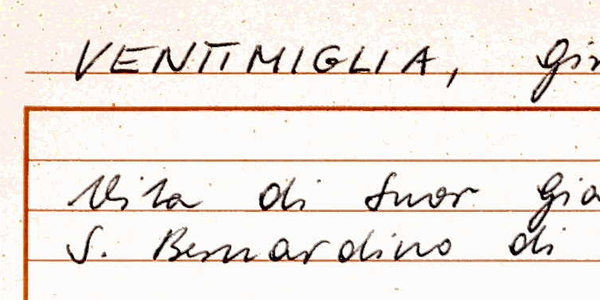 VENTIMIGLIA, Gi
Vita di Suor Gia
S. Bernardino di